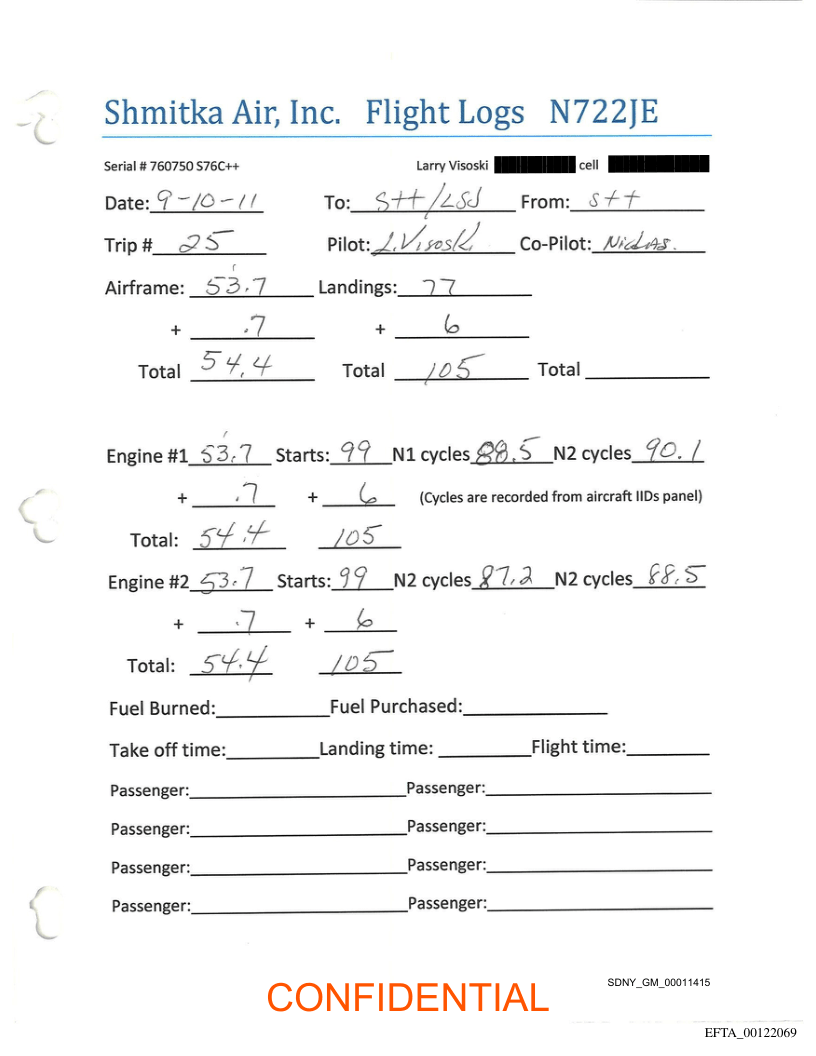 Shmitka Air, Inc. Flight Logs N722JE
Serial # 760750 S76C++ Larry Visoski cell
Date: 9-10-11 To: Stt/LSJ From: Stt
Trip # 25 Pilot: L. Visoski Co-Pilot:
Airframe: 53.7 Landings: 77
+ .7 + 6
Total 54.4 Total 105 Total
Engine #1 53.7 Starts: 99 N1 cycles 88.5 N2 cycles 90.1
+ .7 + 6 (Cycles are recorded from aircraft IIDs panel)
Total: 54.4 105
Engine #2 53.7 Starts: 99 N2 cycles 87.2 N2 cycles 88.5
+ .7 + 6
Total: 54.4 105
Fuel Burned: Fuel Purchased:
Take off time: Landing time: Flight time:
Passenger: Passenger:
Passenger: Passenger:
Passenger: Passenger:
Passenger: Passenger:
SDNY_GM_00011415
CONFIDENTIAL
EFTA_00122069